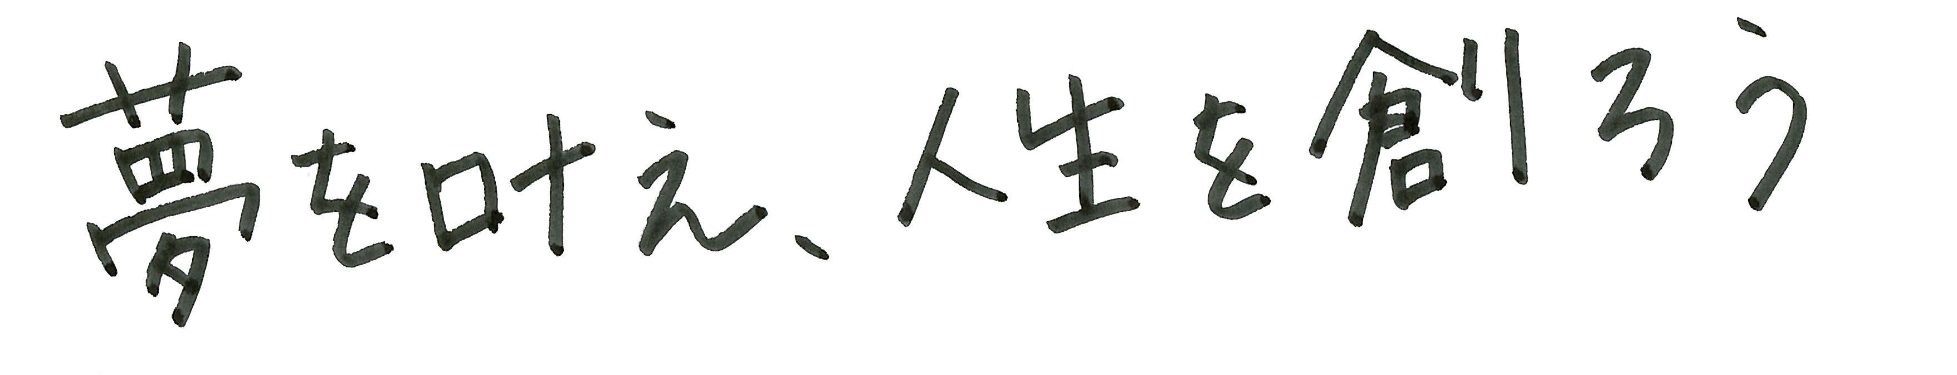 夢を叶え、人生を創ろう